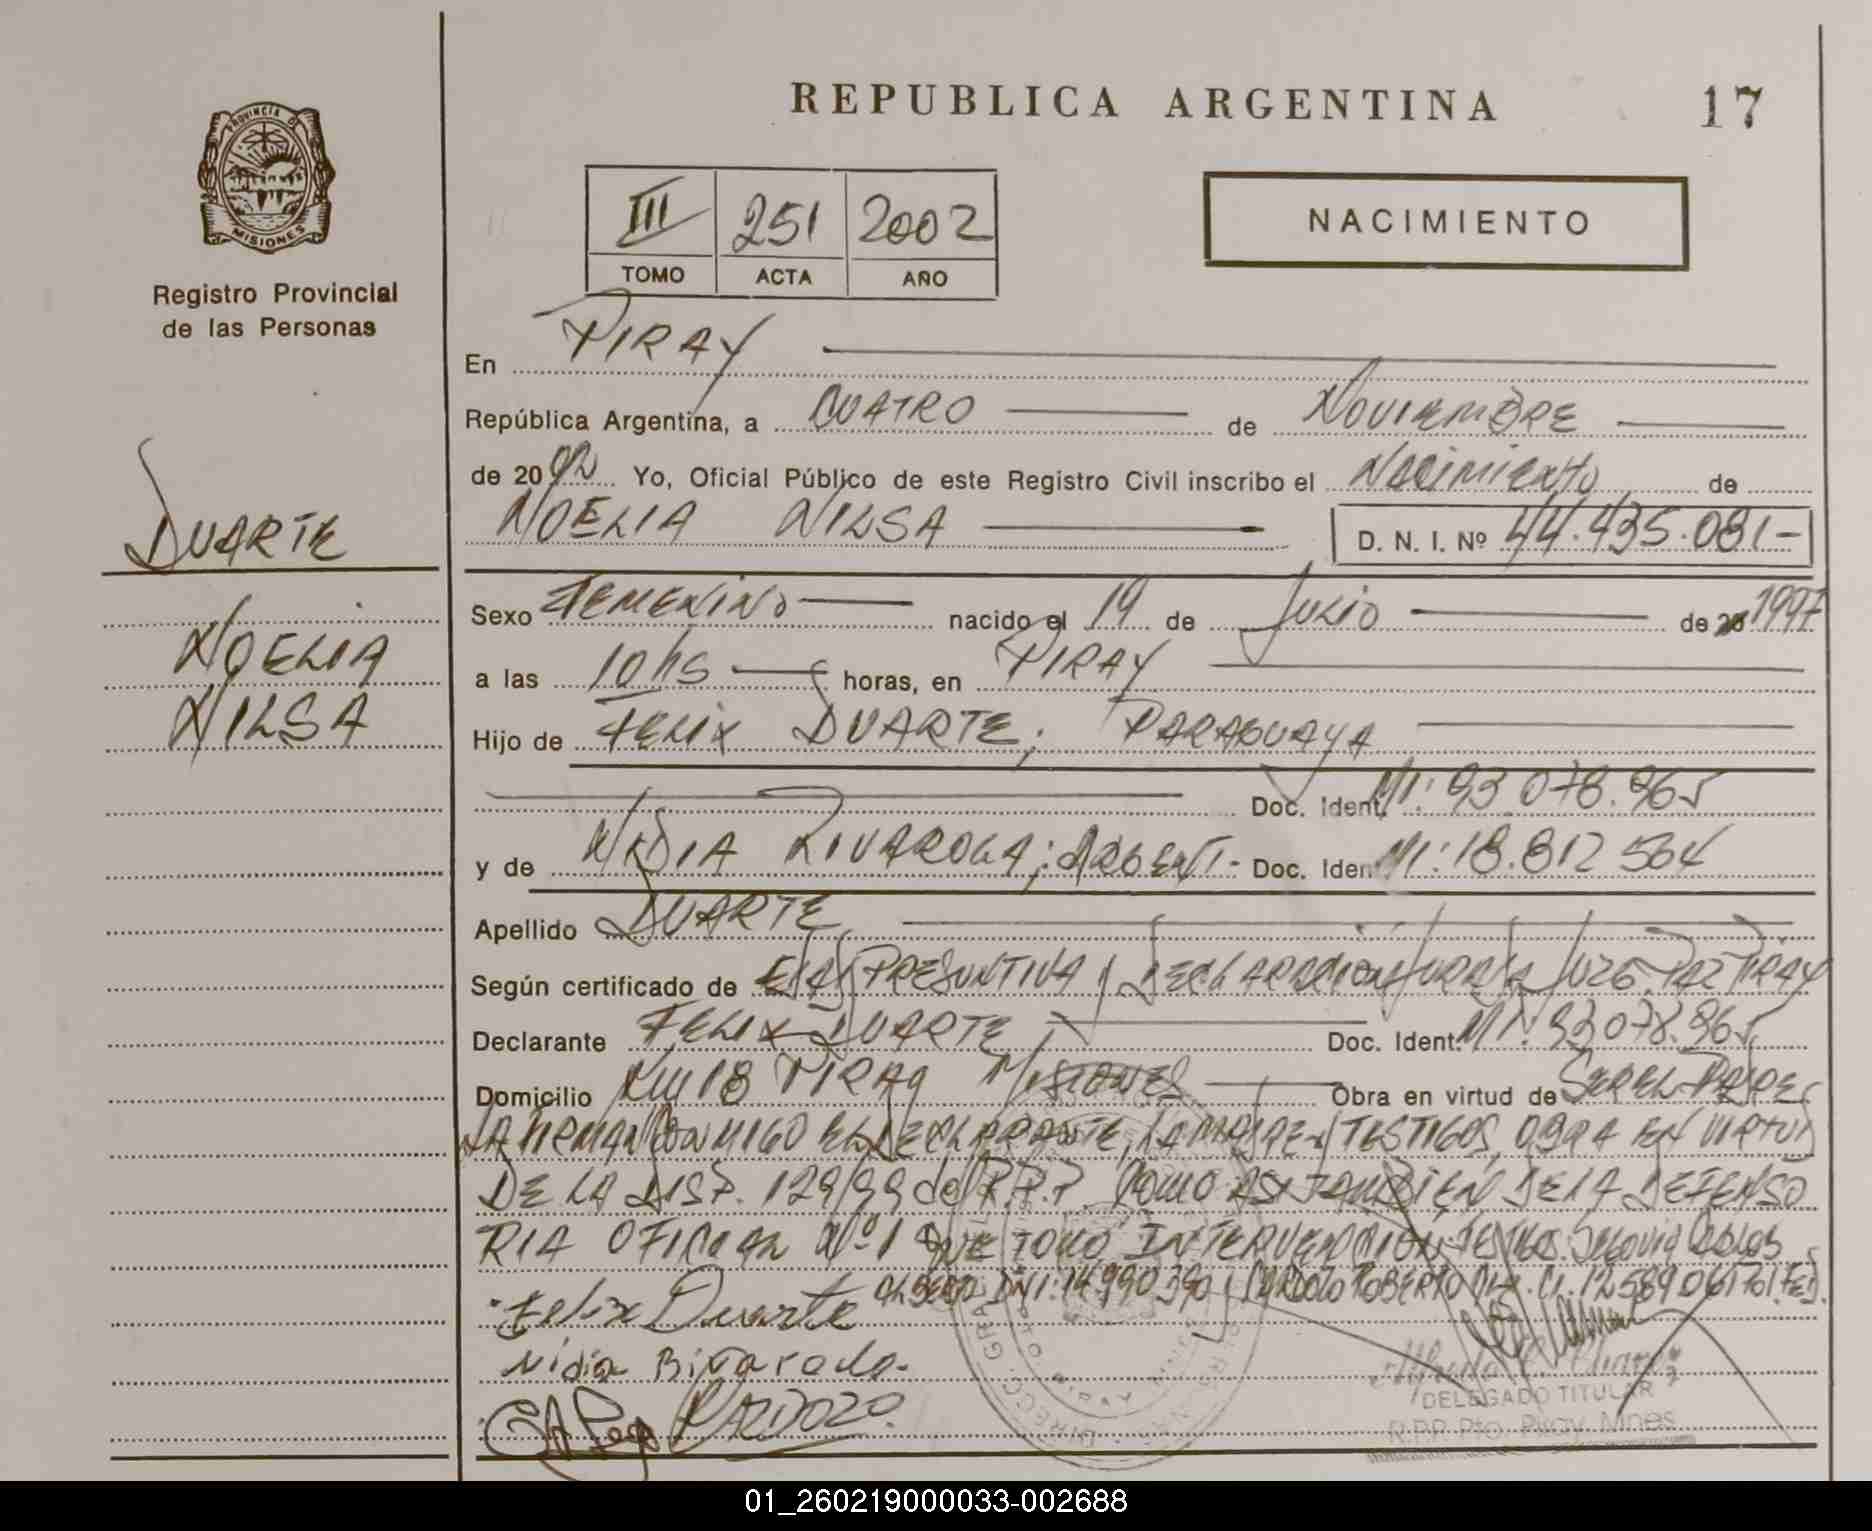 REPUBLICA ARGENTINA 17
PROVINCIA DE
MISIONES
Registro Provincial
de las Personas
III 251 2002
TOMO ACTA AÑO
NACIMIENTO
En PIRAY
República Argentina, a CUATRO de NOVIEMBRE
de 2002 Yo, Oficial Público de este Registro Civil inscribo el NACIMIENTO de
NOELIA NILSA D. N. I. Nº 44.435.081-
DUARTE
NOELIA
NILSA
Sexo FEMENINO nacido el 19 de JULIO de 20 1997
a las 10 hs horas, en PIRAY
Hijo de FELIX DUARTE; PARAGUAYA
Doc. Ident. MI: 93.078.965
y de NIDIA RIVAROLA; ARGENTI- Doc. Ident MI: 18.812.564
Apellido DUARTE
Según certificado de EDAD PRESUNTIVA y DECLARACION JURADA JUZG. PAZ PIRAY
Declarante FELIX DUARTE Doc. Ident. MI. 93.078.965
Domicilio KM 18 PIRAY MISIONES Obra en virtud de SER EL PADRE
LA FIRMAN CONMIGO EL DECLARANTE, LA MADRE y TESTIGOS, OBRA EN VIRTUD
DE LA DISP. 129/99 del R.P.P. COMO ASI TAMBIEN DE LA DEFENSO
RIA OFICIAL Nº 1 QUE TOMO INTERVENCION. TESTIGOS. Segovia Carlos
ALBERTO DNI: 14.990.390 y CARDOZO ROBERTO
Felix Duarte
Nidia Bivarola.
CARDOZO
DELEGADO TITULAR
R.P.P. Pto. Piray, Mnes
01_260219000033-002688